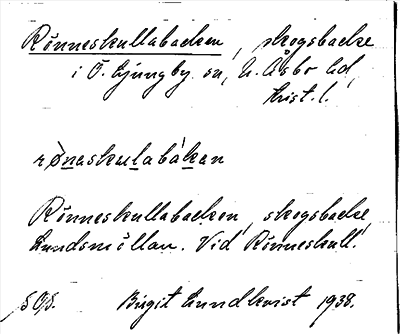 Rönneskullabacken, skogsbacke
i Ö. Ljungby sn, N. Åsbo hd,
Krist. l.
rö̀naskulabákan
Rönneskullabacken, skogsbacke,
Lundsmöllan. Vid Rönneskull.
Birgit Lundkvist 1938.